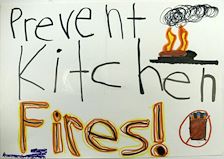 Prevent
Kitchen
Fires!